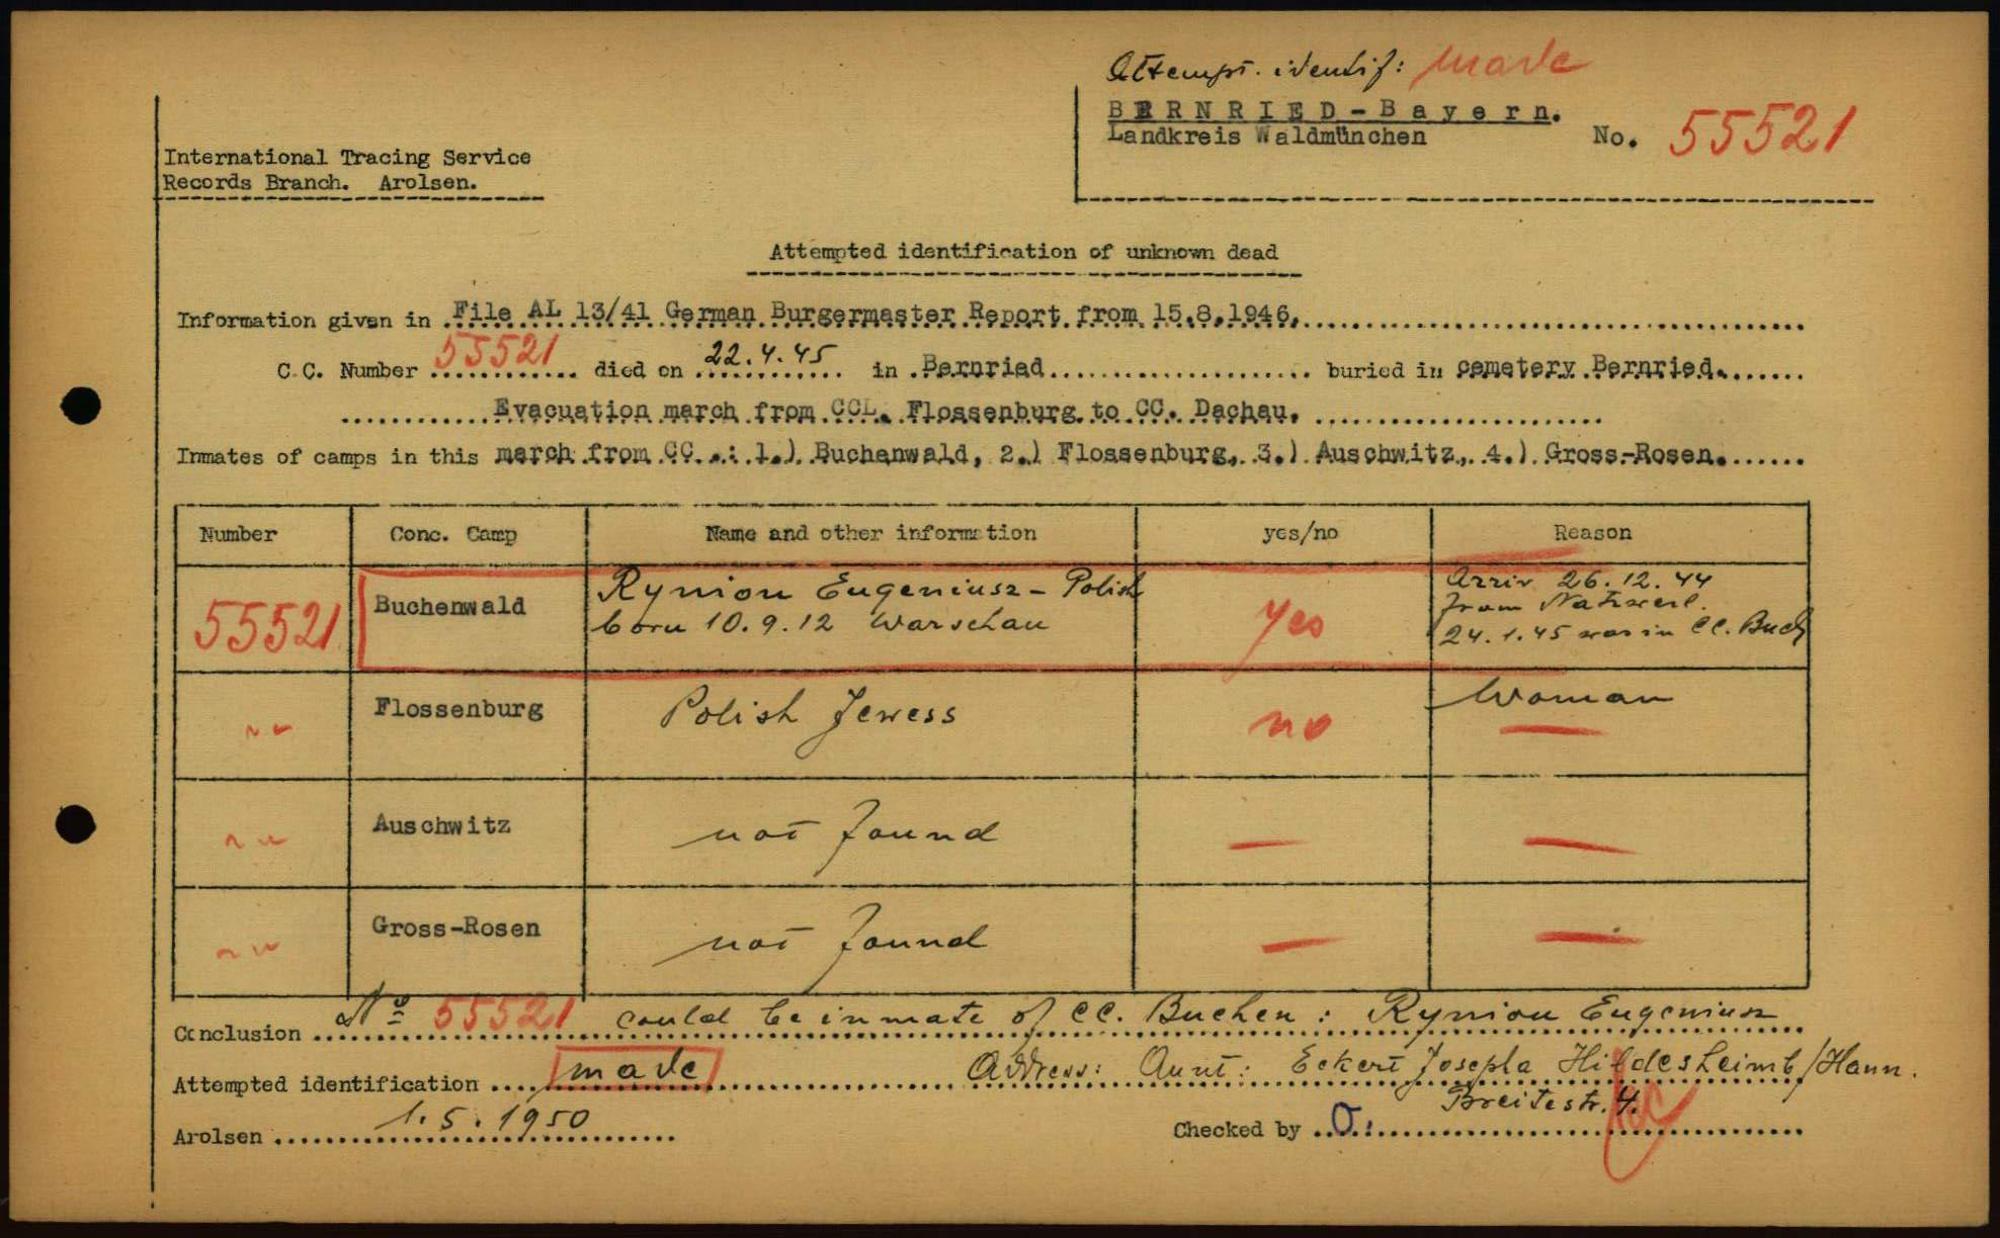 Attempt. identif: made
BERNRIED-Bayern.
Landkreis Waldmünchen No. 55521
International Tracing Service
Records Branch. Arolsen.
Attempted identification of unknown dead
Information given in File AL 13/41 German Burgermaster Report from 15.8.1946.
C.C. Number 55521 died on 22.4.45 in Bernried buried in cemetery Bernried.
Evacuation march from CCL. Flossenburg to CC. Dachau.
Inmates of camps in this march from CC.: 1.) Buchenwald, 2.) Flossenburg, 3.) Auschwitz, 4.) Gross-Rosen.
Number Conc. Camp Name and other information yes/no Reason
55521 Buchenwald Rynion Eugeniusz - Polish yes Arriv 26.12.44
born 10.9.12 Warschau from Natzweil.
24.1.45 was in CC. Buch
Flossenburg Polish Jewess no Woman
Auschwitz not found
Gross-Rosen not found
Conclusion No 55521 could be inmate of CC. Buchen: Rynion Eugeniusz
Attempted identification made Address: Aunt: Eckert Josepha Hildesheimb/Hann.
Breitestr. 4.
Arolsen 1.5.1950 Checked by O.